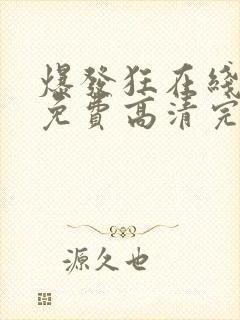 爆發狂在綫
免費高清完
源久也